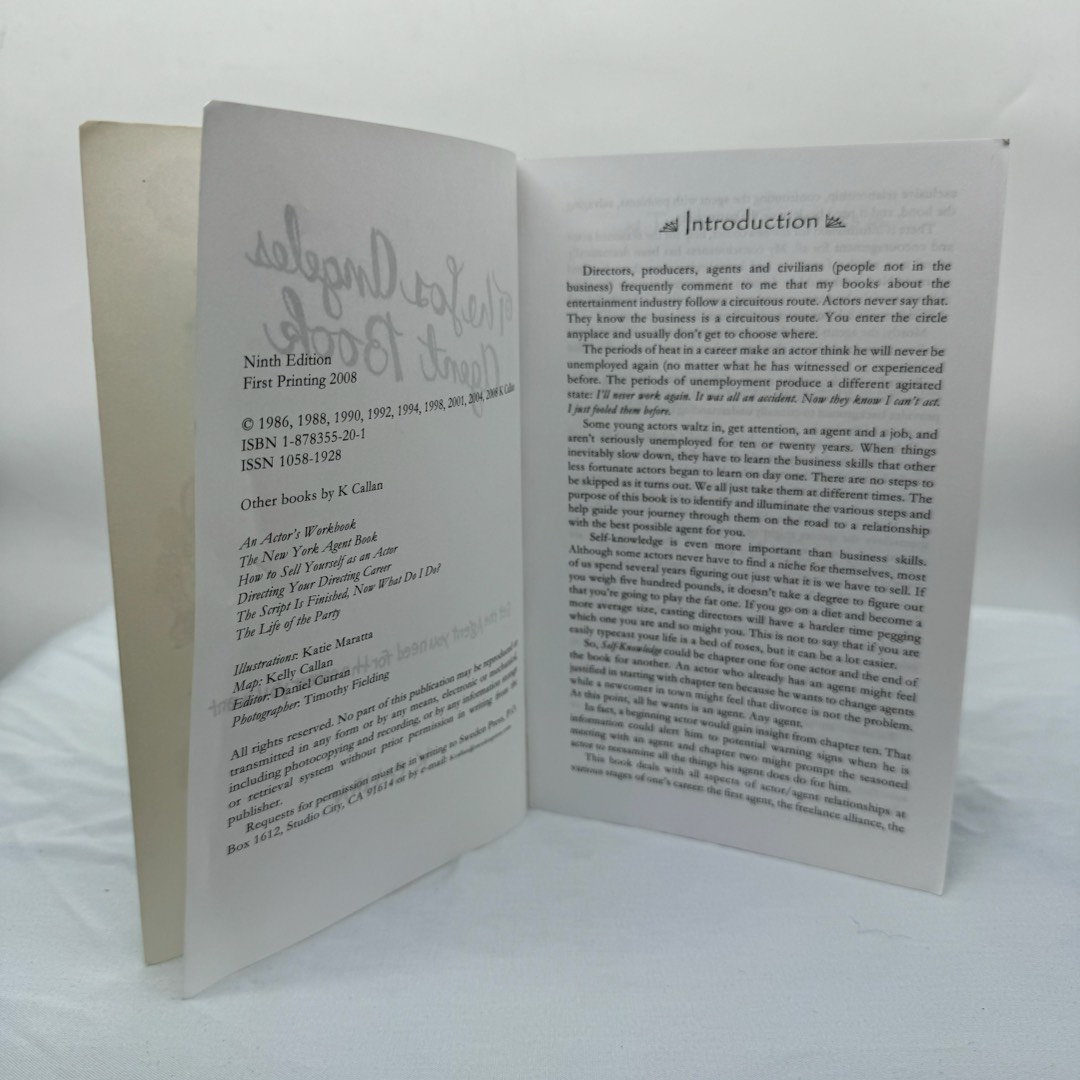 The Los Angeles
Agent Book
Ninth Edition
First Printing 2008
© 1986, 1988, 1990, 1992, 1994, 1998, 2001, 2004, 2008 K Callan
ISBN 1-878355-20-1
ISSN 1058-1928
Other books by K Callan
An Actor's Workbook
The New York Agent Book
How to Sell Yourself as an Actor
Directing Your Directing Career
The Script Is Finished, Now What Do I Do?
The Life of the Party
Illustrations: Katie Maratta
Map: Kelly Callan
Editor: Daniel Curran
Photographer: Timothy Fielding
All rights reserved. No part of this publication may be reproduced or
transmitted in any form or by any means, electronic or mechanical,
including photocopying and recording, or by any information storage
or retrieval system without prior permission in writing from the
publisher.
Requests for permission must be in writing to Sweden Press, P.O.
Box 1612, Studio City, CA 91614 or by e-mail:
Introduction
Directors, producers, agents and civilians (people not in the
business) frequently comment to me that my books about the
entertainment industry follow a circuitous route. Actors never say that.
They know the business is a circuitous route. You enter the circle
anyplace and usually don't get to choose where.
The periods of heat in a career make an actor think he will never be
unemployed again (no matter what he has witnessed or experienced
before. The periods of unemployment produce a different agitated
state: I'll never work again. It was all an accident. Now they know I can't act.
I just fooled them before.
Some young actors waltz in, get attention, an agent and a job, and
aren't seriously unemployed for ten or twenty years. When things
inevitably slow down, they have to learn the business skills that other
less fortunate actors began to learn on day one. There are no steps to
be skipped as it turns out. We all just take them at different times. The
purpose of this book is to identify and illuminate the various steps and
help guide your journey through them on the road to a relationship
with the best possible agent for you.
Self-knowledge is even more important than business skills.
Although some actors never have to find a niche for themselves, most
of us spend several years figuring out just what it is we have to sell. If
you weigh five hundred pounds, it doesn't take a degree to figure out
that you're going to play the fat one. If you go on a diet and become a
more average size, casting directors will have a harder time pegging
which one you are and so might you. This is not to say that if you are
easily typecast your life is a bed of roses, but it can be a lot easier.
So, Self-Knowledge could be chapter one for one actor and the end of
the book for another. An actor who already has an agent might feel
justified in starting with chapter ten because he wants to change agents
while a newcomer in town might feel that divorce is not the problem.
At this point, all he wants is an agent. Any agent.
In fact, a beginning actor would gain insight from chapter ten. That
information could alert him to potential warning signs when he is
meeting with an agent and chapter two might prompt the seasoned
actor to reexamine all the things his agent does do for him.
This book deals with all aspects of actor/agent relationships at
various stages of one's career: the first agent, the freelance alliance, the